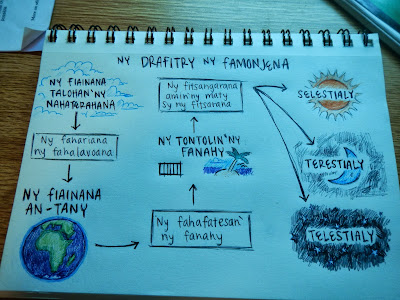 NY DRAFITRY NY FAMONJENA
NY FIAINANA
TALOHAN'NY
NAHATERAHANA
Ny fahariana
ny fahalavoana
NY FIAINANA
AN-TANY
Ny fahafatesan'
ny fanahy
NY TONTOLIN'NY
FANAHY
Ny fitsanganana
amin'ny maty
sy ny fitsarana
SELESTIALY
TERESTIALY
TELESTIALY